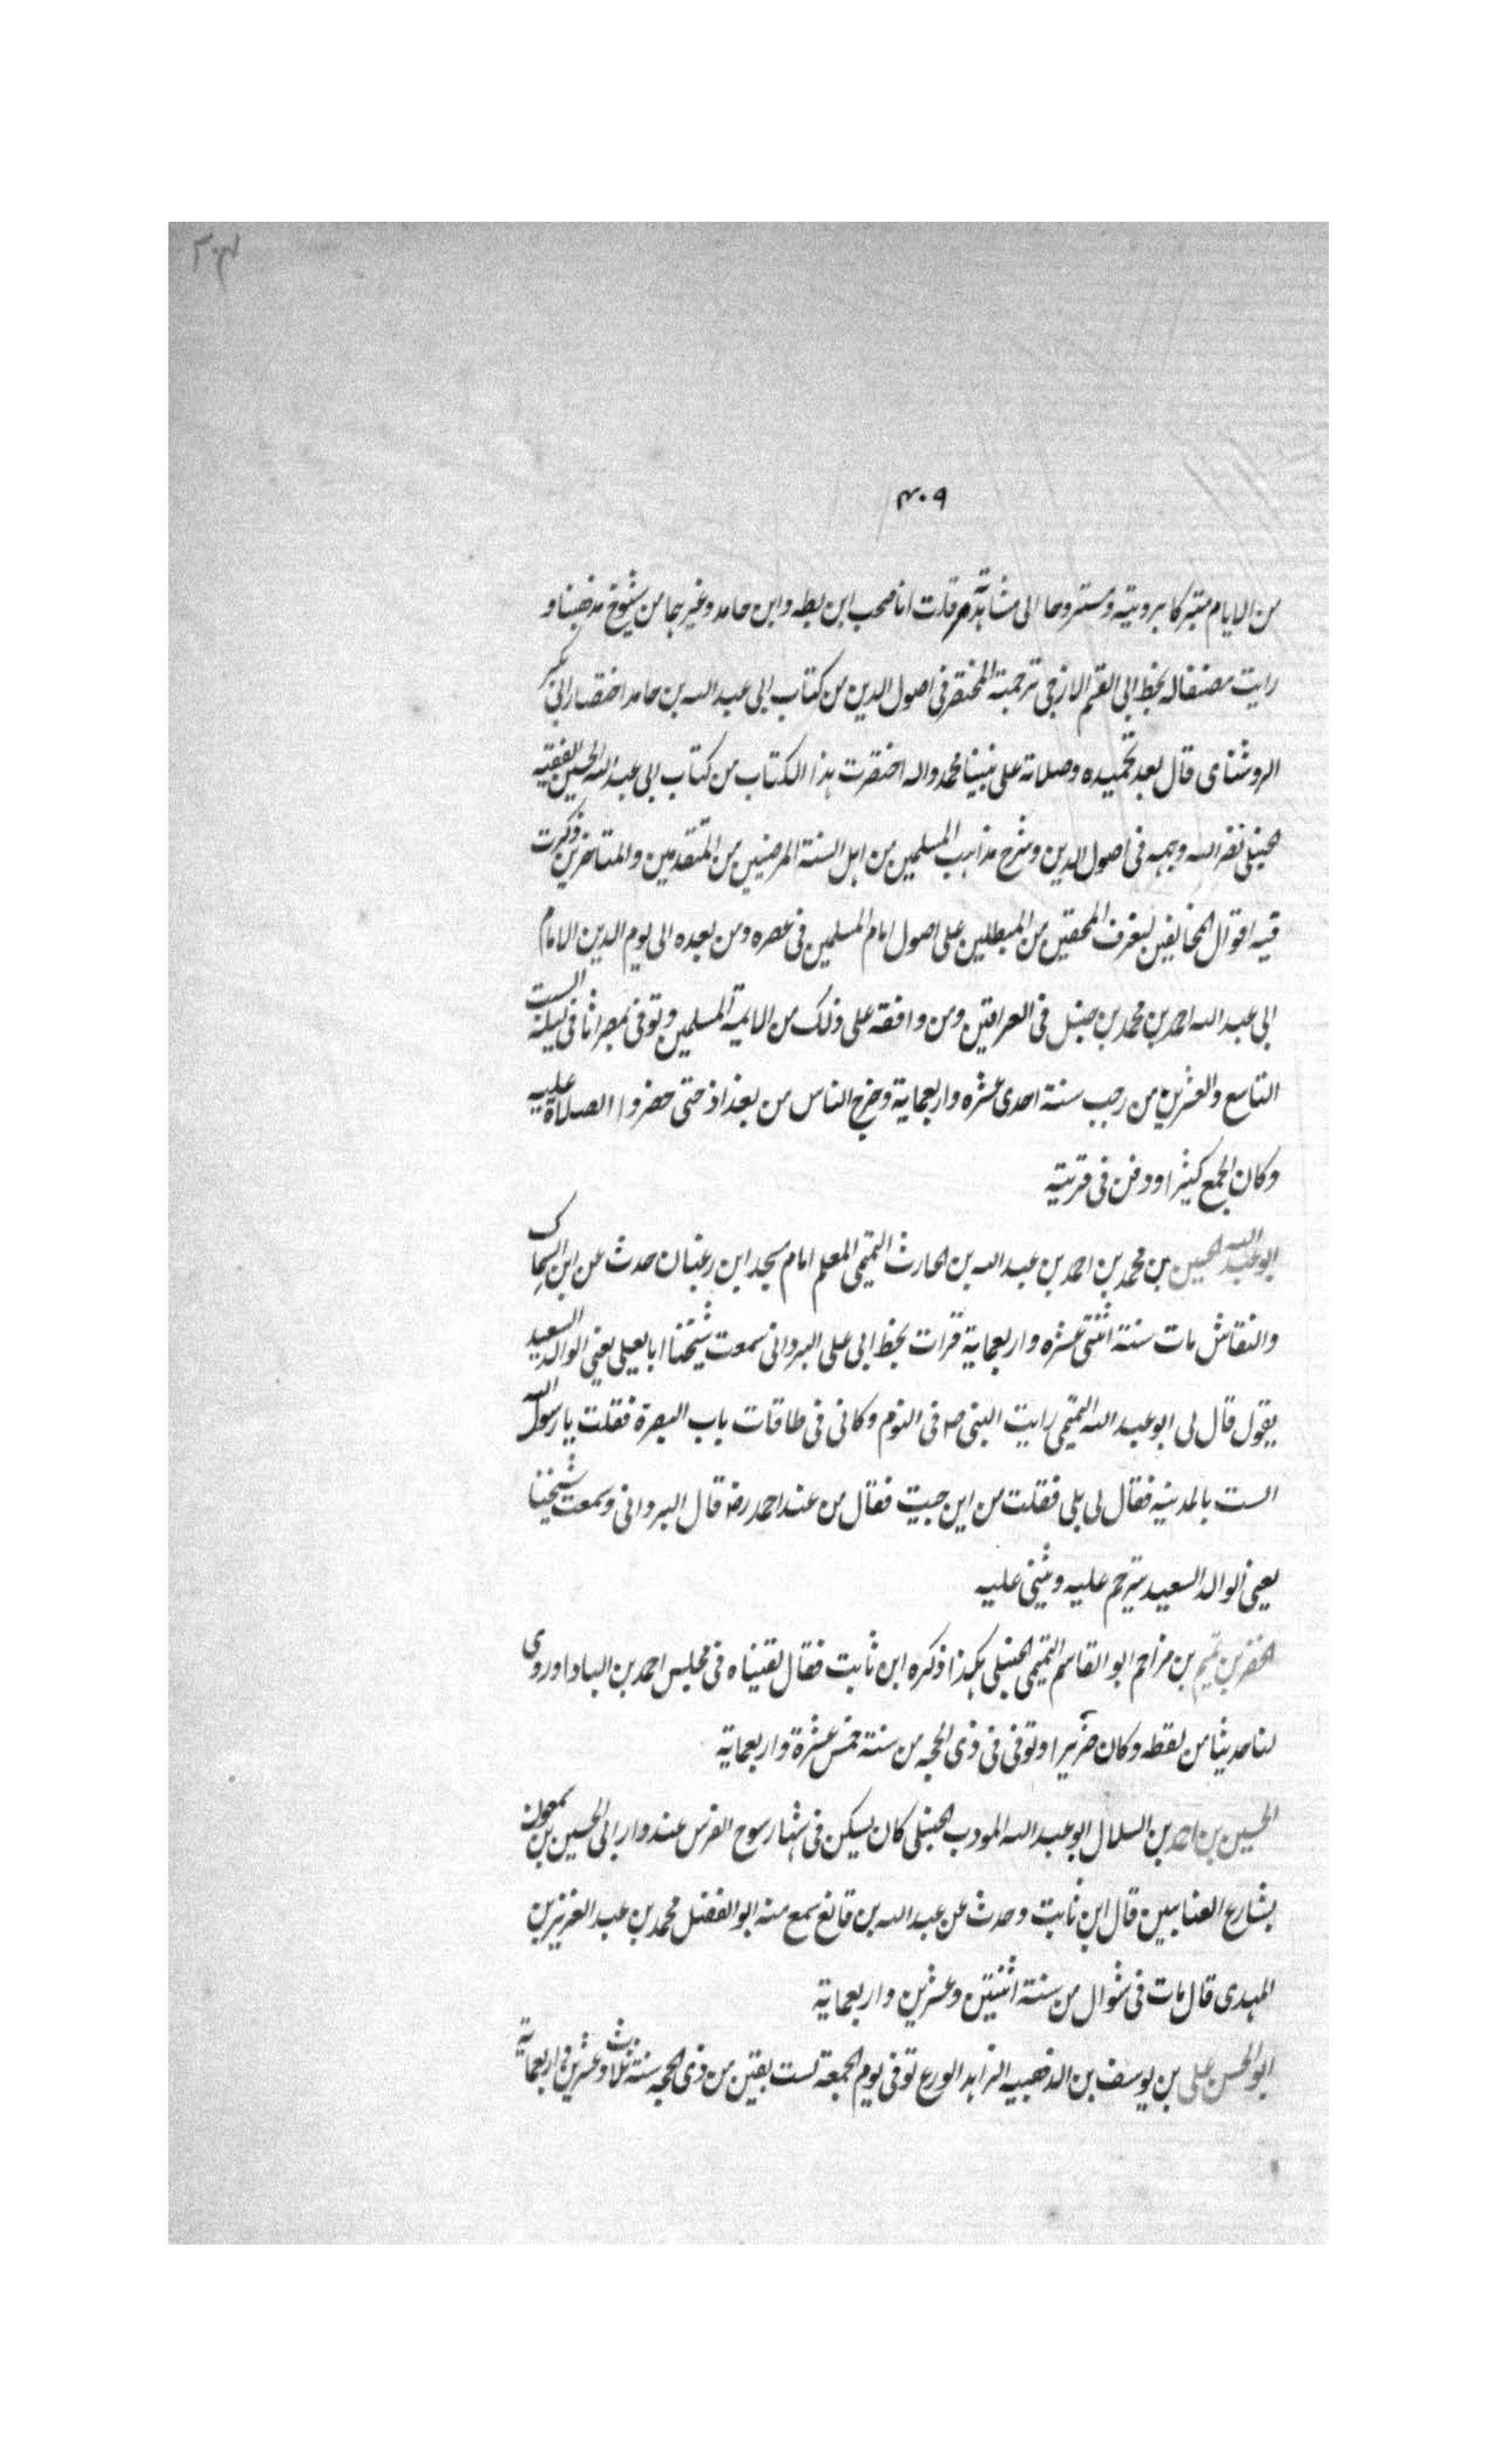 ٢٠٤
٤٠٩
من الايام متبركا برويته ومستروحا الى مشاهدته قلت انا صحب ابن بطه وابن حامد وغيرهما من شيوخ مذهبنا و
رايت مصنفا له بخط ابى القسم الازجى ترجمته المختصر فى اصول الدين من كتاب ابى عبد الله بن حامد اختصار ابى بكر
الروشناى قال بعد تحميده وصلاته على نبينا محمد واله اختصرت هذا الكتاب من كتاب ابى عبد الله الحسين الفقيه
الحنبلى نضر الله وجهه فى اصول الدين وشرح مذاهب المسلمين من اهل السنة المرضيين من المتقدمين والمتاخرين ذكرت
فيه اقوال المخالفين ليعرف المحقين من المبطلين على اصول امام المسلمين فى عصره ومن بعده الى يوم الدين الامام
ابى عبد الله احمد بن محمد بن حنبل فى العراقين ومن وافقه على ذلك من الايمة المسلمين وتوفى بمصراثا فى ليلة الست
التاسع والعشرين من رجب سنة احدى عشره واربعماية وخرج الناس من بغداذ حتى حضروا الصلاة عليه
وكان الجمع كثيرا ودفن فى قريته
ابو عبد الله الحسين بن محمد بن احمد بن عبد الله بن الحارث التميمى المعلم امام مسجد ابن رغبان حدث عن ابن السماك
والنقاش مات سنة اثنتى عشره واربعماية قرات بخط ابى على البردانى سمعت شيخنا ابا يعلى يعنى الوالد السعيد
يقول قال لى ابو عبد الله التميمى رايت النبى ص فى النوم وكانى فى طاقات باب البصرة فقلت يا رسول الله
الست بالمدينه فقال لى بلى فقلت من اين جيت فقال من عند احمد رضه قال البردانى وسمعت شيخنا
يعنى الوالد السعيد يترحم عليه ويثنى عليه
الخضر بن تميم بن مزاحم ابو القاسم التميمى الحنبلى هكذا ذكره ابن ثابت فقال لقيناه فى مجلس احمد بن البادا وروى
لنا حديثا من لفظه وكان ضريرا وتوفى فى ذى الحجه من سنة خمس عشرة واربعماية
الحسين بن احمد بن السلال ابو عبد الله المودب الحنبلى كان يسكن فى شهار سوج الفرس عند دار ابى الحسين بن سمعون
بشارع العتابيين قال ابن ثابت وحدث عن عبد الله بن قانع سمع منه ابو الفضل محمد بن عبد العزيز بن
المهدى قال مات فى شوال من سنة اثنتين وعشرين واربعماية
ابو الحسن على بن يوسف بن الذهبيه الزاهد الورع توفى يوم الجمعة لست بقين من ذى الحجه سنة ثلاث وعشرين واربعماية